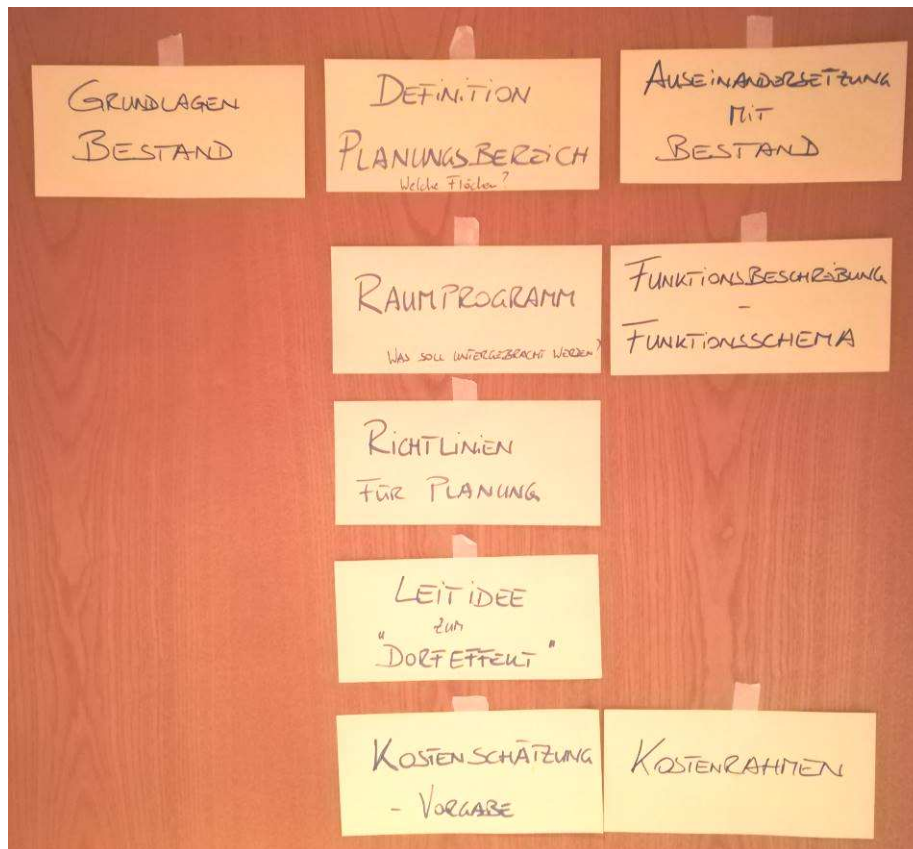 GRUNDLAGEN
BESTAND
DEFINITION
PLANUNGSBEREICH
Welche Flächen?
AUSEINANDERSETZUNG
MIT
BESTAND
RAUMPROGRAMM
WAS SOLL UNTERGEBRACHT WERDEN?
FUNKTIONSBESCHREIBUNG
-
FUNKTIONSSCHEMA
RICHTLINIEN
FÜR PLANUNG
LEITIDEE
zum
"DORFEFFEKT"
KOSTENSCHÄTZUNG
- VORGABE
KOSTENRAHMEN